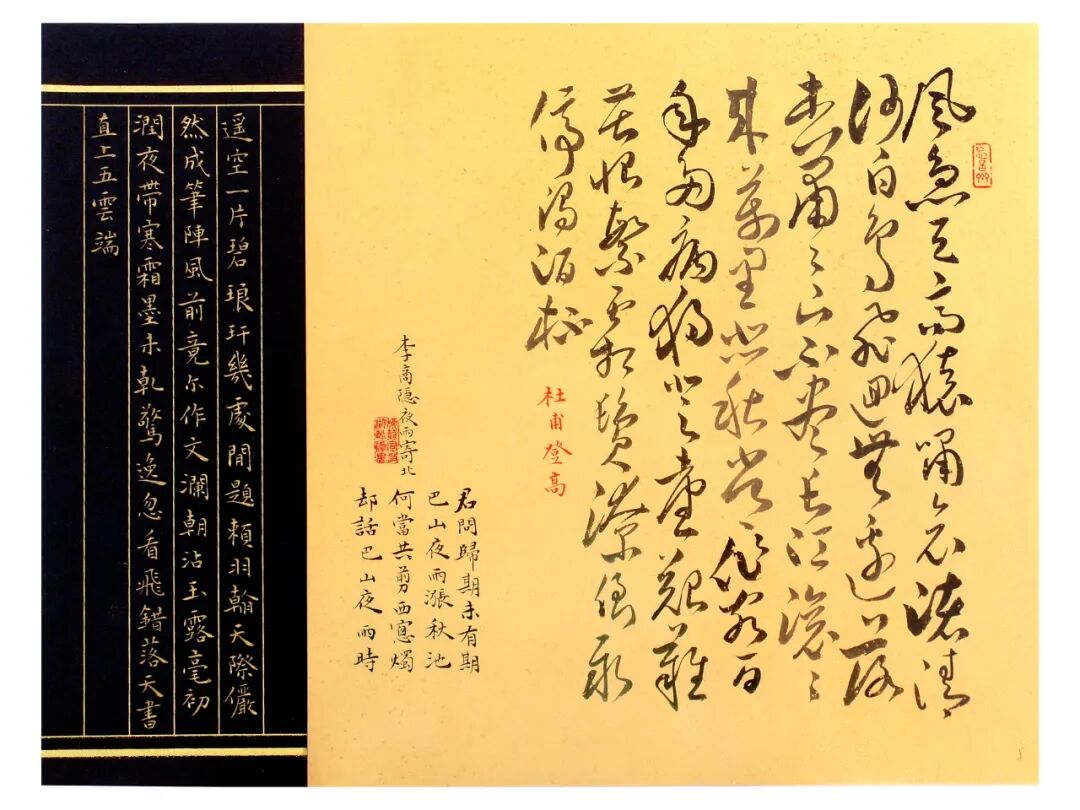 風急天高猿嘯哀渚清
沙白鳥飛迴無邊落
木蕭〻下不盡長江滾〻
來萬里悲秋常作客百
年多病獨登臺艱難
苦恨繁霜鬢潦倒新
停濁酒杯
杜甫登高
李商隱夜雨寄北
君問歸期未有期
巴山夜雨漲秋池
何當共剪西窻燭
却話巴山夜雨時
遥空一片碧琅玕幾處閒題賴羽翰天際儼
然成筆陣風前竟尔作文瀾朝沾玉露毫初
潤夜帶寒霜墨未乾驚逸忽看飛錯落天書
直上五雲端